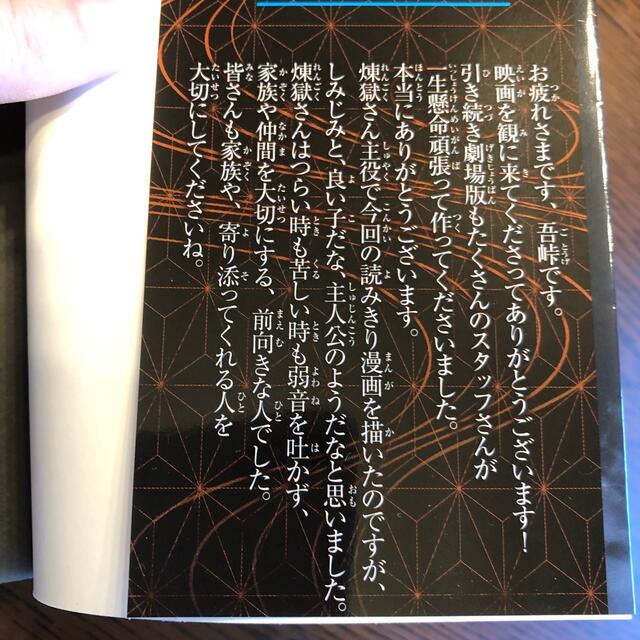 お疲れさまです、吾峠です。
映画を観に来てくださってありがとうございます!
引き続き劇場版もたくさんのスタッフさんが
一生懸命頑張って作ってくださいました。
本当にありがとうございます。
煉獄さん主役で今回の読みきり漫画を描いたのですが、
しみじみと、良い子だな、主人公のようだなと思いました。
煉獄さんはつらい時も苦しい時も弱音を吐かず、
家族や仲間を大切にする、前向きな人でした。
皆さんも家族や、寄り添ってくれる人を
大切にしてくださいね。